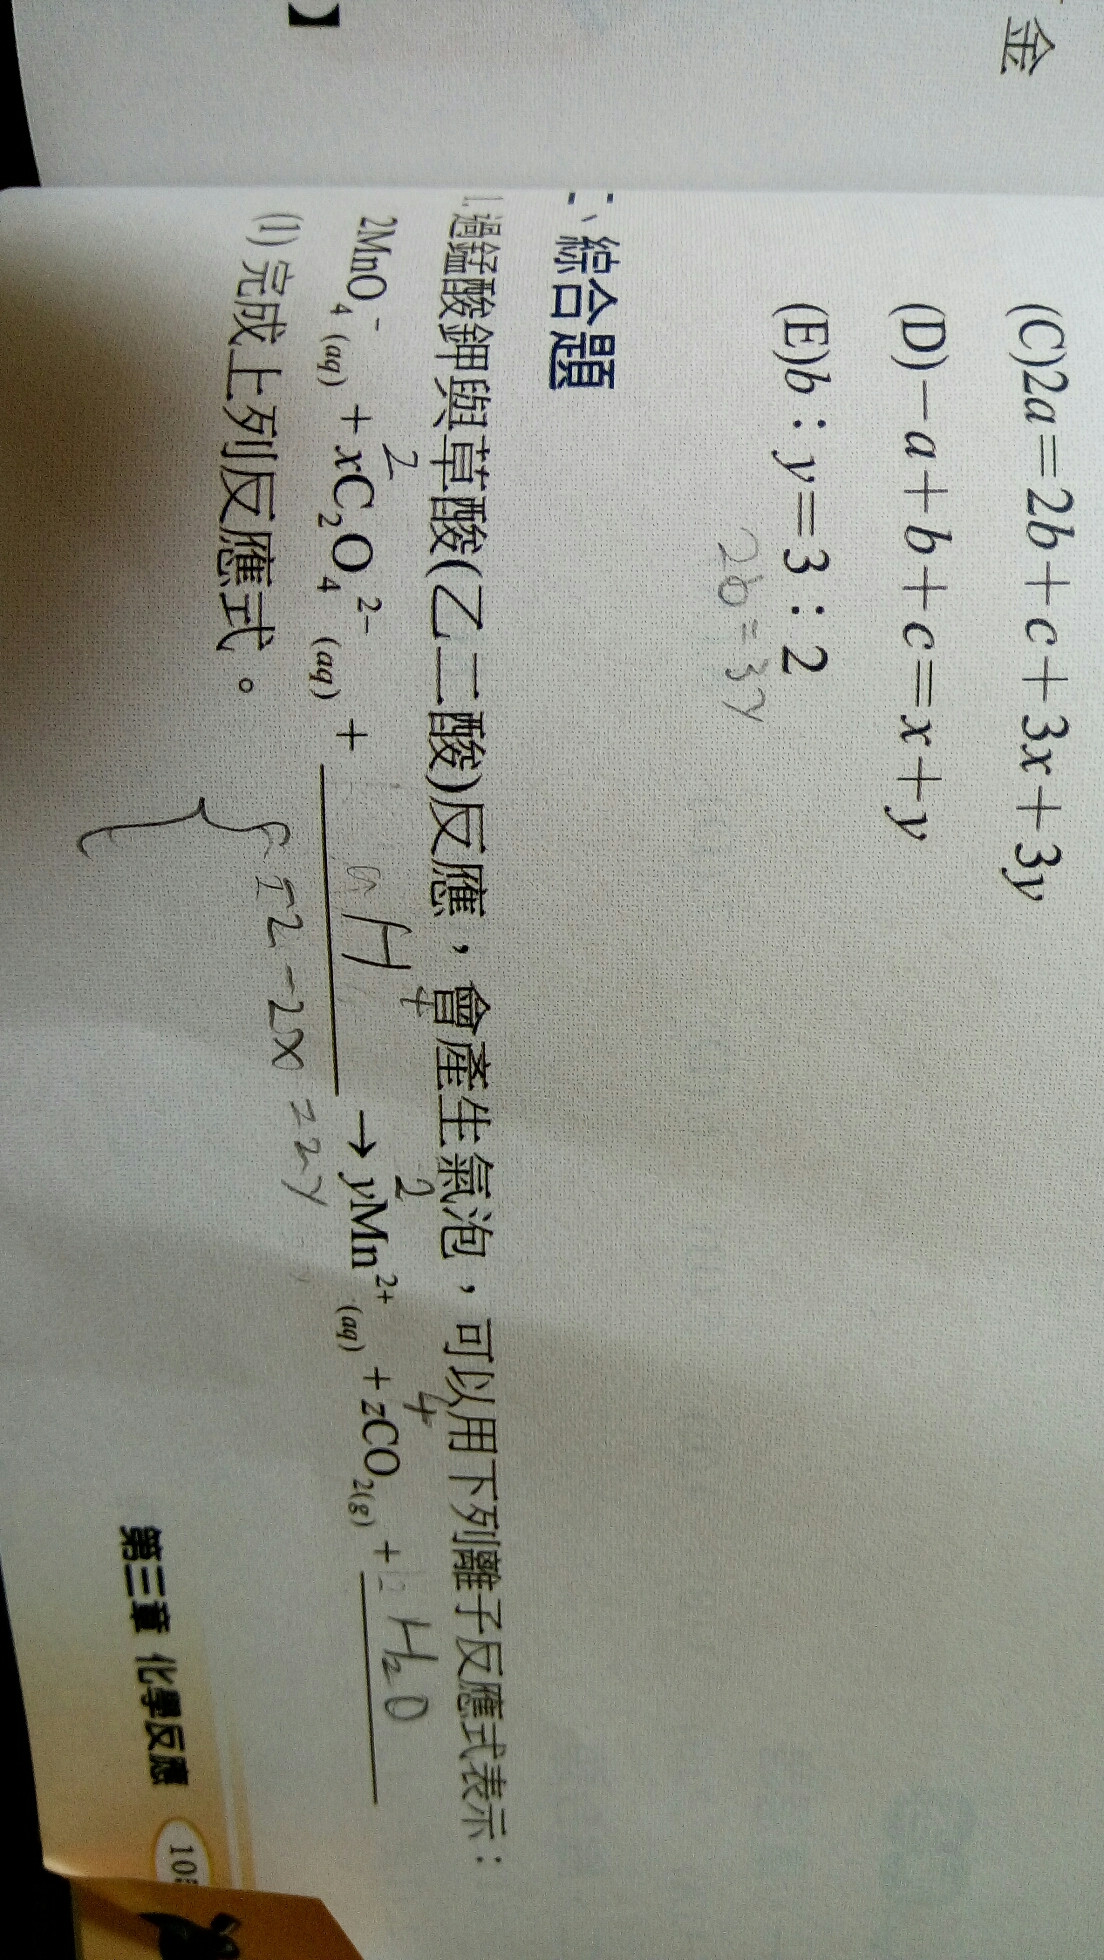 金
】
(C)2a=2b+c+3x+3y
(D)-a+b+c=x+y
(E)b：y=3：2
2b=3y
二、綜合題
1.過錳酸鉀與草酸(乙二酸)反應，會產生氣泡，可以用下列離子反應式表示：
2 2 4
2MnO₄⁻(aq) + xC₂O₄²⁻(aq) + aH⁺ → yMn²⁺(aq) + zCO₂(g) + b H₂O
(1) 完成上列反應式。
-2-2x=2y
第三章 化學反應